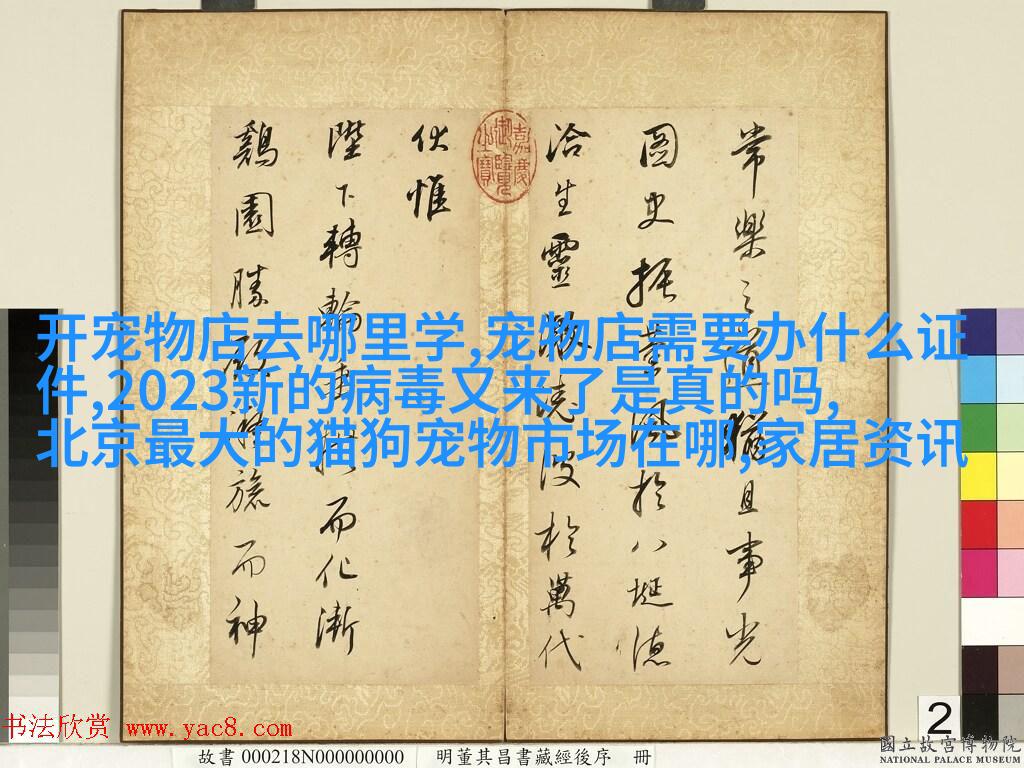 开宠物店去哪里学,宠物店需要办什么证
件,2023新的病毒又来了是真的吗,
北京最大的猫狗宠物市场在哪,家居资讯
常樂之且事光
圖史振薰風於八埏德
洽生靈激澆波於萬代
伏惟
陛下轉輪而化漸
鷄園勝旒而神
嘉慶御覽之寶
2
书法欣赏 www.yac8.com
故書 000218N000000000 明董其昌書藏經後序 冊
國立故宮博物院
NATIONAL PALACE MUSEUM